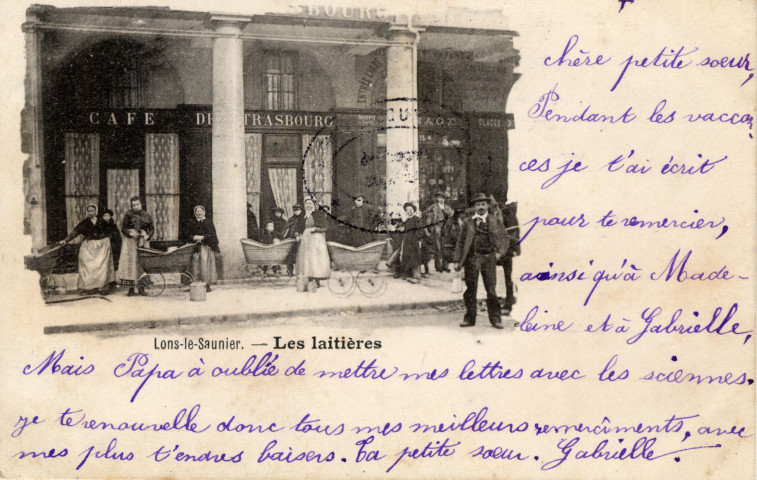 SBOURG
CAFE DE STRASBOURG
chère petite soeur,
Pendant les vaccan-
ces je t'ai écrit
pour te remercier,
ainsi qu'à Made-
leine et à Gabrielle,
Lons-le-Saunier. — Les laitières
Mais Papa à oubliée de mettre mes lettres avec les sciennes.
je te renouvelle donc tous mes meilleurs remerciments, avec
mes plus t'endres baisers. Ta petite soeur. Gabrielle.